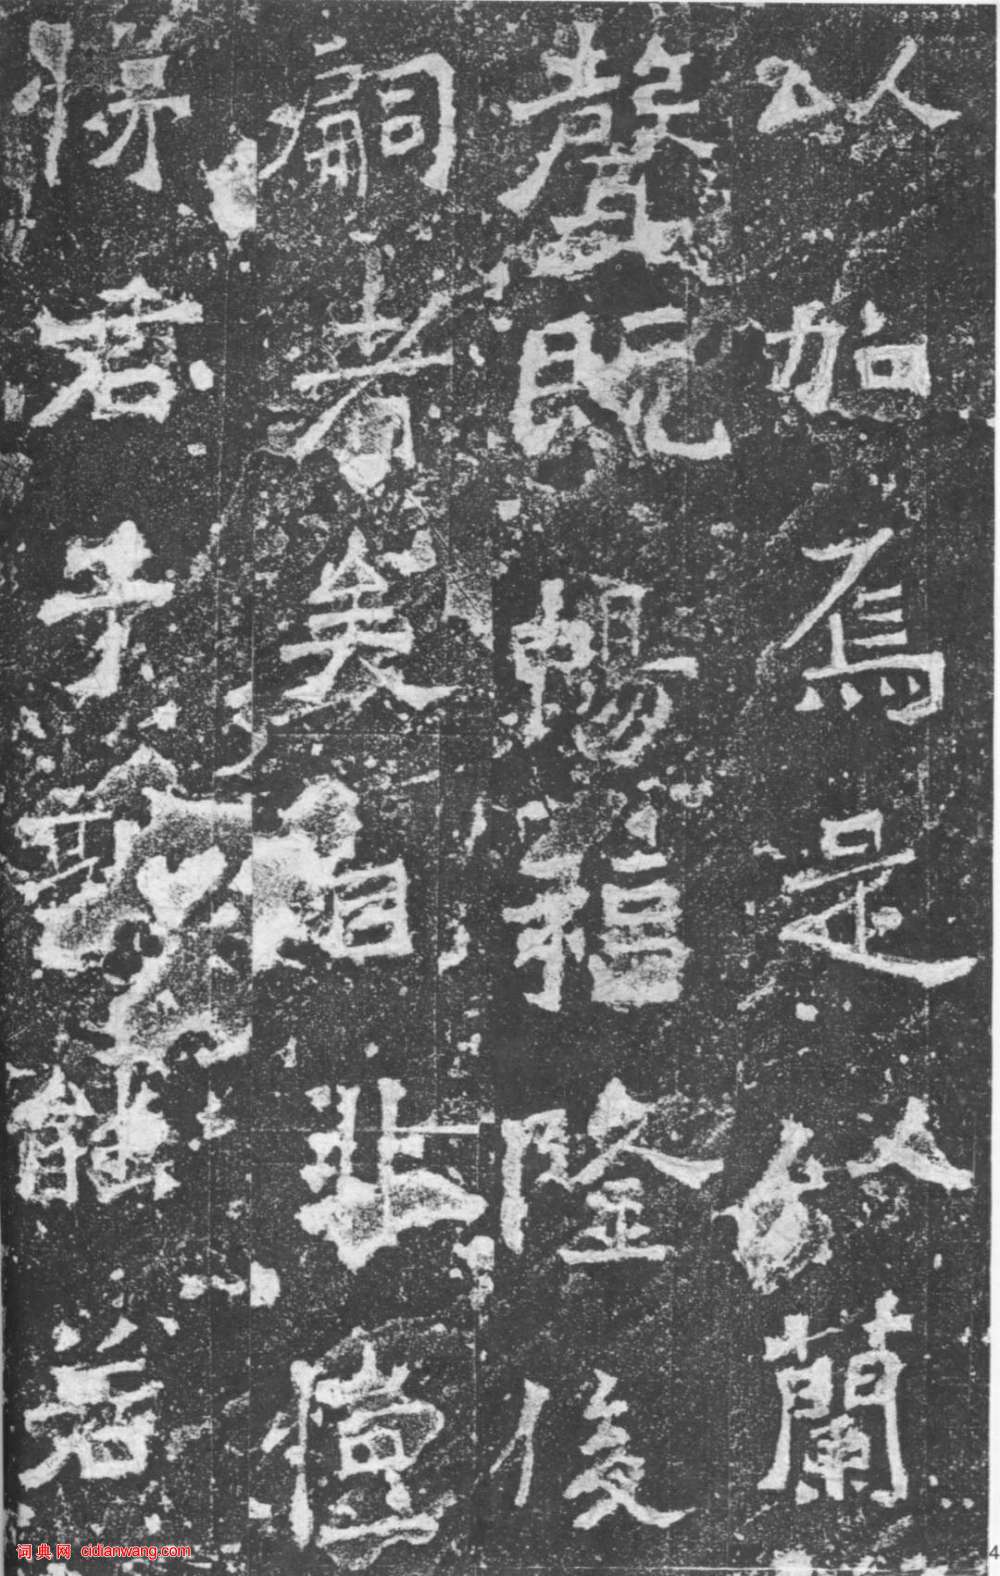 以加焉是以蘭
聲既暢福隆後
嗣者矣自非愷
悌君子孰能若
词典网 cidianwang.com
4